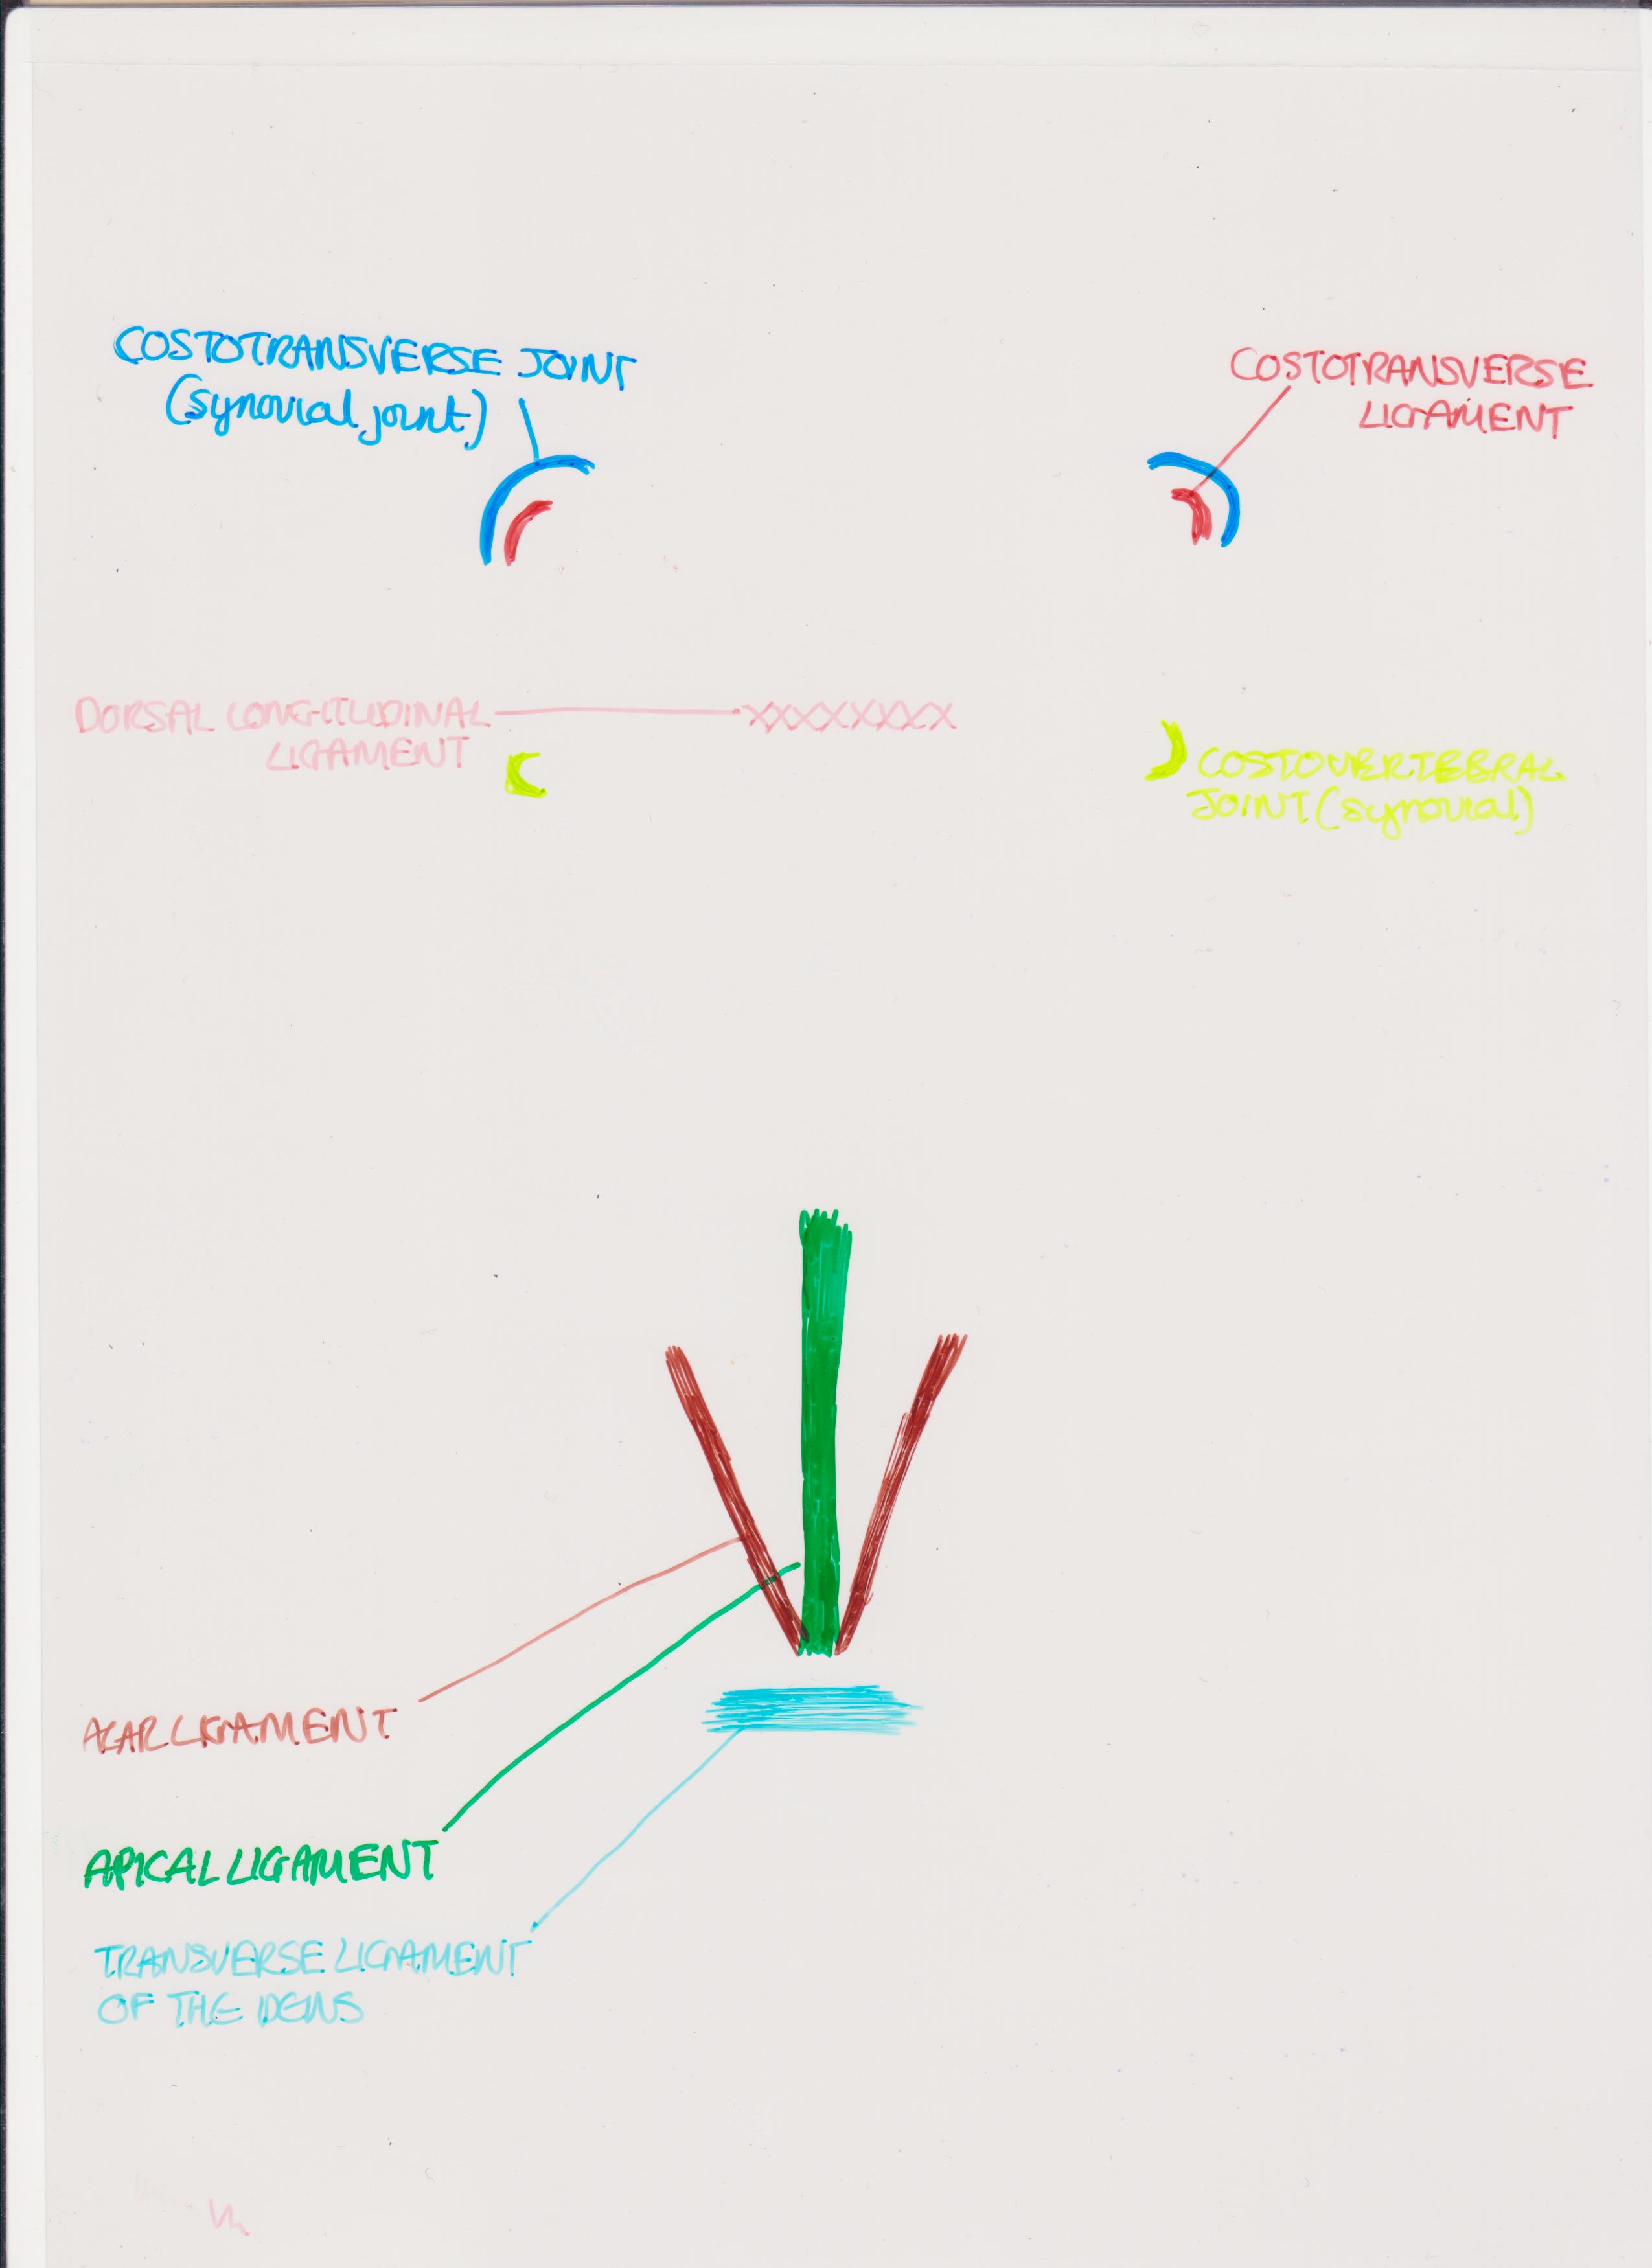 COSTOTRANSVERSE JOINT
(synovial joint)
COSTOTRANSVERSE
LIGAMENT
DORSAL LONGITUDINAL
LIGAMENT
COSTOVERTEBRAL
JOINT (synovial)
ALAR LIGAMENT
APICAL LIGAMENT
TRANSVERSE LIGAMENT
OF THE DENS